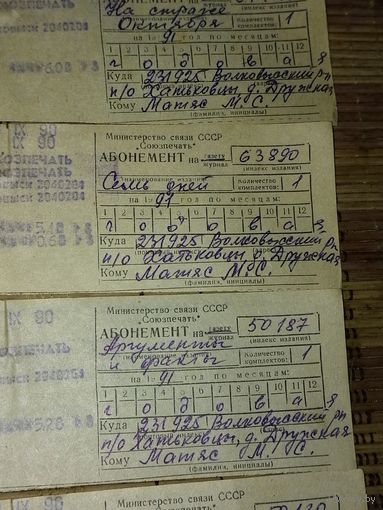 На страже
Октября
комплектов: 1
на 1991 год по месяцам:
1 2 3 4 5 6 7 8 9 10 11 12
г о д о в а я
Куда 231925 Волковысский рн
п/о Хатьковцы, д. Дружная
Кому Матяс М. С.
(фамилия, инициалы)
IX 90
СОЮЗПЕЧАТЬ
2040204
Министерство связи СССР
„Союзпечать“
АБОНЕМЕНТ на газету журнал 63890
(индекс издания)
Семь дней
Количество комплектов: 1
на 1991 год по месяцам:
1 2 3 4 5 6 7 8 9 10 11 12
г о д о в а я
Куда 231925 Волковысский рн
п/о Хатьковцы, д. Дружная
Кому Матяс М. С.
(фамилия, инициалы)
IX 90
2040204
Министерство связи СССР
„Союзпечать“
АБОНЕМЕНТ на газету журнал 50187
(индекс издания)
Аргументы
и факты
Количество комплектов: 1
на 1991 год по месяцам:
1 2 3 4 5 6 7 8 9 10 11 12
г о д о в а я
Куда 231925 Волковысский рн
п/о Хатьковцы, д. Дружная
Кому Матяс М. С.
(фамилия, инициалы)
IX 90
Министерство связи СССР
„Союзпечать“